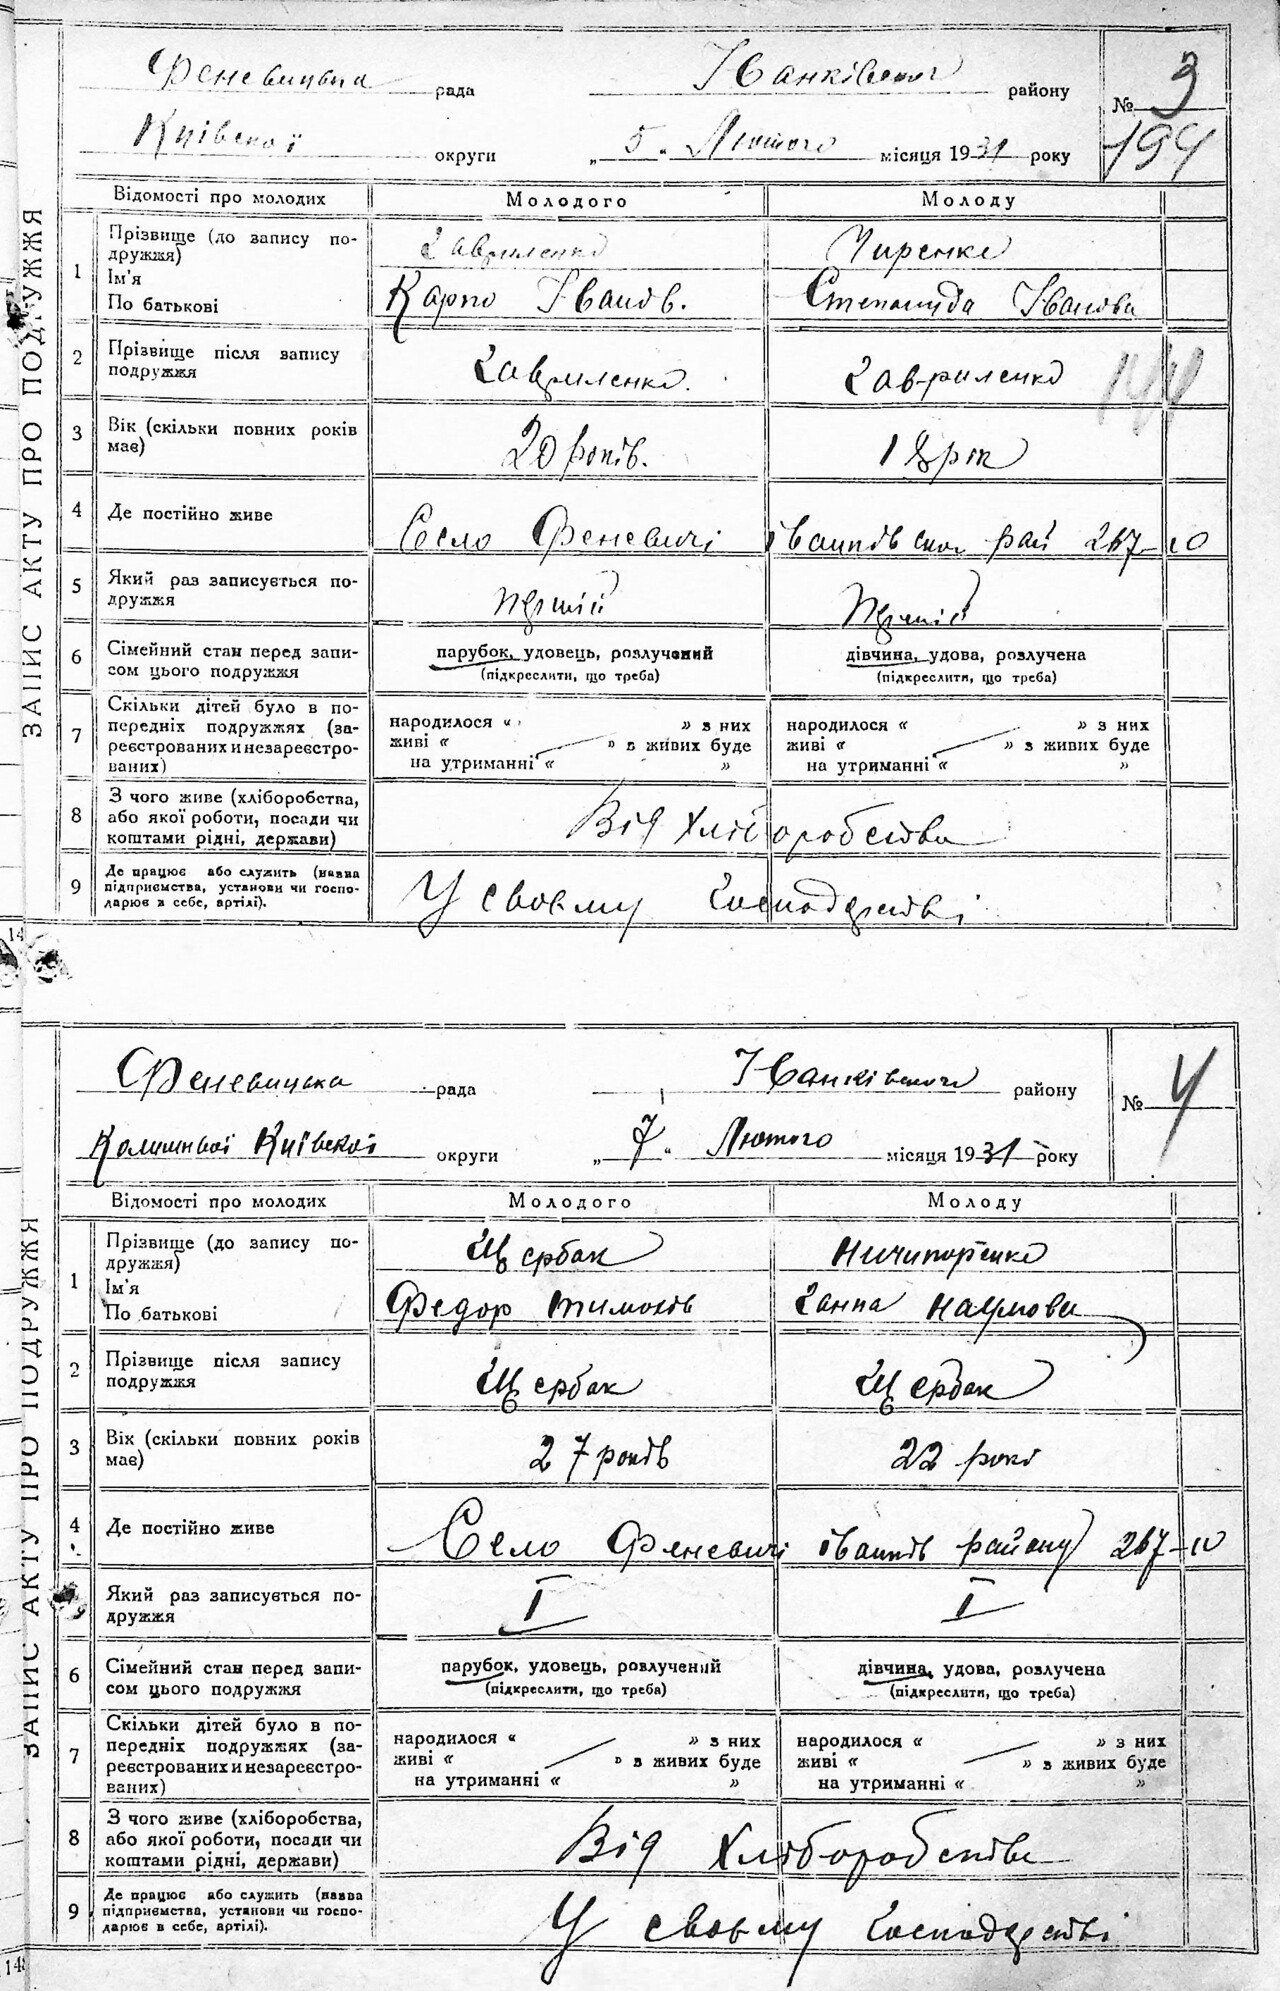 ЗАПИС АКТУ ПРО ПОДРУЖЖЯ
Феневицька рада Іванківського району № 3
Київської округи „ 5 “ Лютого місяця 1931 року 194
Відомості про молодих Молодого Молоду
1 Прізвище (до запису подружжя) Гавриленко
Ім'я
По батькові Карпо Іванов. Степанида Іванова
2 Прізвище після запису подружжя Гавриленко. Гавриленко 144
3 Вік (скільки повних років має) 20 років. 18 рік
4 Де постійно живе Село Феневичі Іванківськ. рай 267-10
5 Який раз записується подружжя перший перший
6 Сімейний стан перед записом цього подружжя парубок, удовець, розлучений дівчина, удова, розлучена
(підкреслити, що треба) (підкреслити, що треба)
7 Скільки дітей було в попередніх подружжях (зареєстрованих и незареєстрованих)
народилося « » з них народилося « » з них
живі « » в живих буде живі « » в живих буде
на утриманні « » на утриманні « »
8 З чого живе (хліборобства, або якої роботи, посади чи коштами рідні, держави) Від хліборобства
9 Де працює або служить (назва підприємства, установи чи господарює в себе, артілі). У своєму господарстві
14
ЗАПИС АКТУ ПРО ПОДРУЖЖЯ
Феневицька рада Іванківського району № 4
Колишньої Київскої округи „ 7 “ Лютого місяця 1931 року
Відомості про молодих Молодого Молоду
1 Прізвище (до запису подружжя) Щербак Ничипоренко
Ім'я
По батькові Федор Тимохів Ганна Наумова
2 Прізвище після запису подружжя Щербак Щербак
3 Вік (скільки повних років має) 27 років 22 рокі
4 Де постійно живе Село Феневичі Іванків району 267-10
Який раз записується подружжя I I
6 Сімейний стан перед записом цього подружжя парубок, удовець, розлучений дівчина, удова, розлучена
(підкреслити, що треба) (підкреслити, що треба)
7 Скільки дітей було в попередніх подружжях (зареєстрованих и незареєстрованих)
народилося « » з них народилося « » з них
живі « » в живих буде живі « » в живих буде
на утриманні « » на утриманні « »
8 З чого живе (хліборобства, або якої роботи, посади чи коштами рідні, держави) Від Хліборобства
9 Де працює або служить (назва підприємства, установи чи господарює в себе, артілі). У своєму господарстві
148